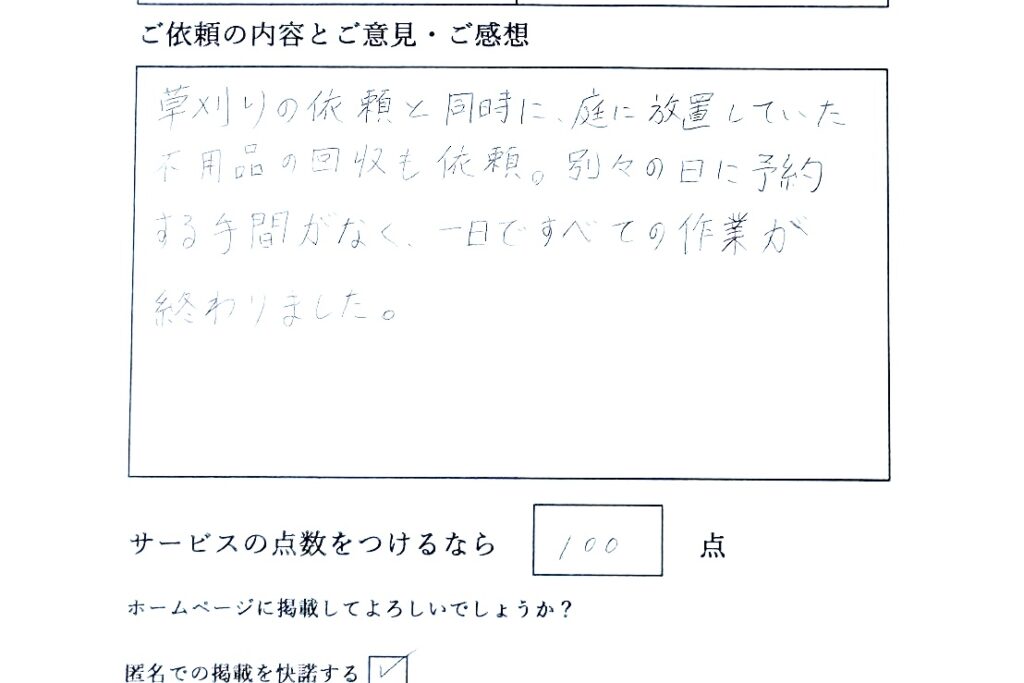 ご依頼の内容とご意見・ご感想
草刈りの依頼と同時に、庭に放置していた
不用品の回収も依頼。別々の日に予約
する手間がなく、一日ですべての作業が
終わりました。
サービスの点数をつけるなら 100 点
ホームページに掲載してよろしいでしょうか？
匿名での掲載を快諾する